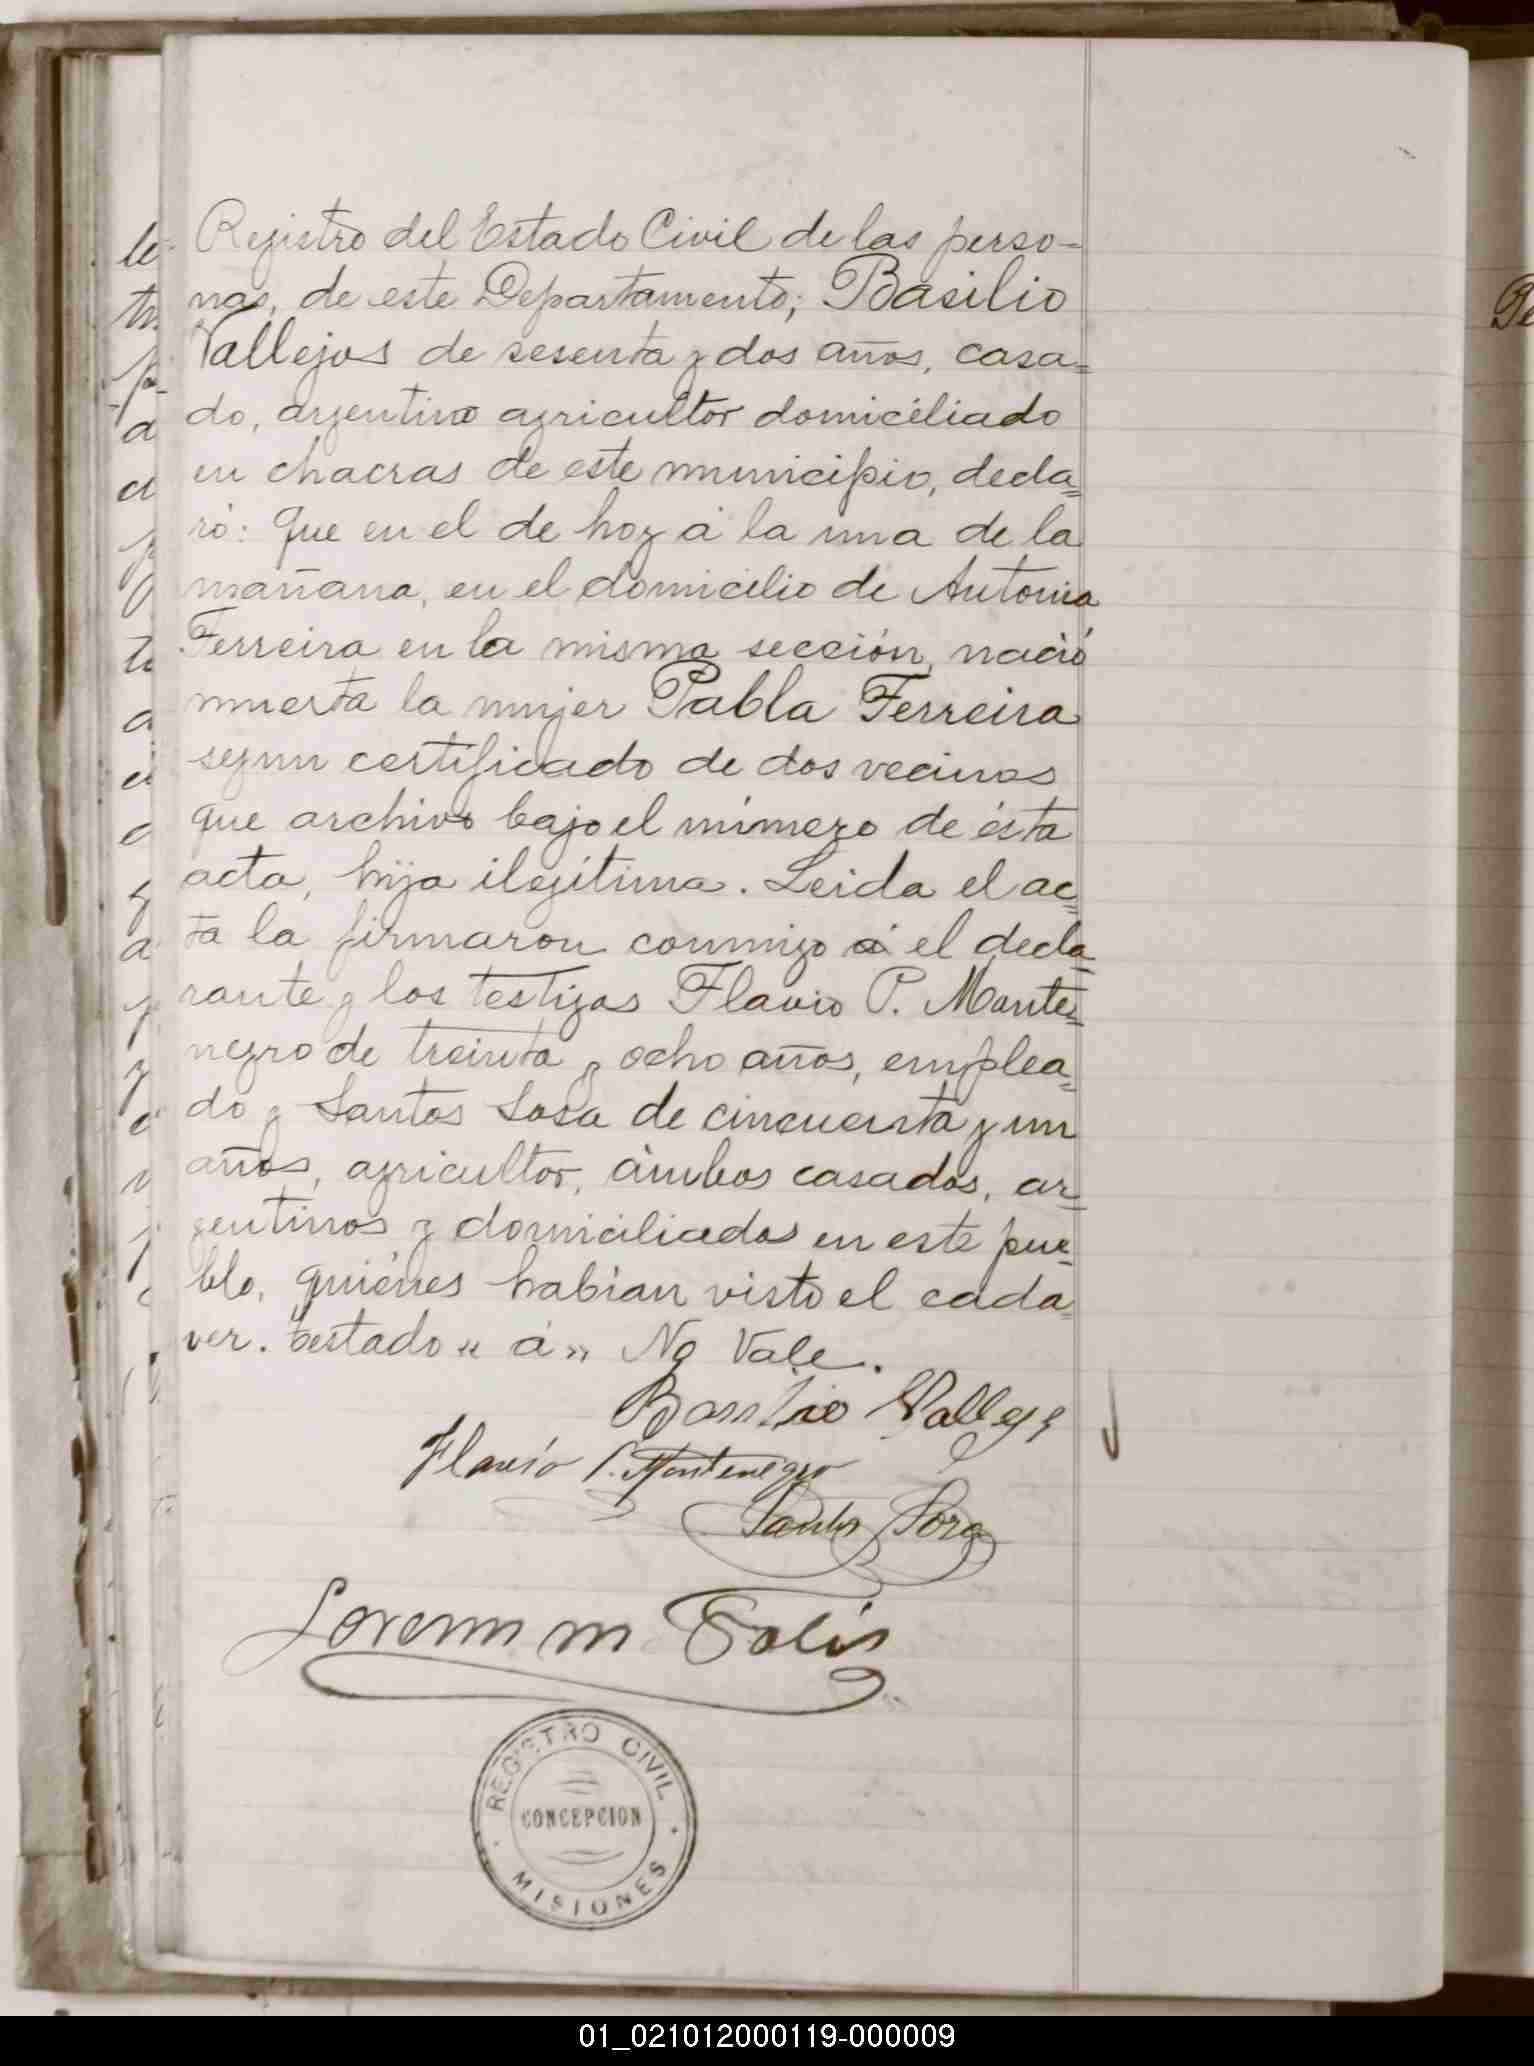 Registro del Estado Civil de las perso=
nas, de este Departamento; Basilio
Vallejos de sesenta y dos años, casa=
do, argentino agricultor domiciliado
en chacras de este municipio, decla=
ró: Que en el de hoy á la una de la
mañana, en el domicilio de Antonia
Ferreira en la misma sección, nació
muerta la mujer Pabla Ferreira
segun certificado de dos vecinos
que archivo bajo el número de ésta
acta, hija ilegítima. Leida el ac=
ta la firmaron conmigo á el decla=
rante y los testigos Flavio P. Monte=
negro de treinta y ocho años, emplea=
do y Santos Sosa de cincuenta y un
años, agricultor, ámbos casados, ar=
gentinos y domiciliados en este pue=
blo, quiénes habian visto el cada=
ver. Testado « á » No Vale.
Basilio Vallejos
Flavio P. Montenegro
Santos Sosa
Lorenzo M
REGISTRO CIVIL
CONCEPCION
MISIONES
01_021012000119-000009